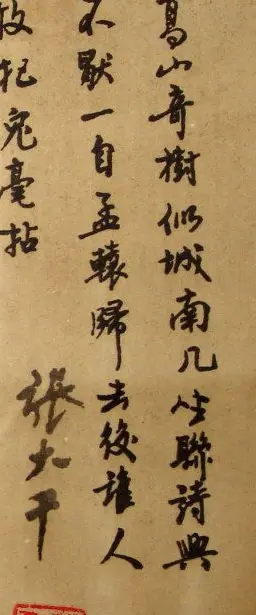 高山奇樹似城南几坐聯詩興
不厭一自孟轅歸去後誰人
敢把兔毫拈
張大千